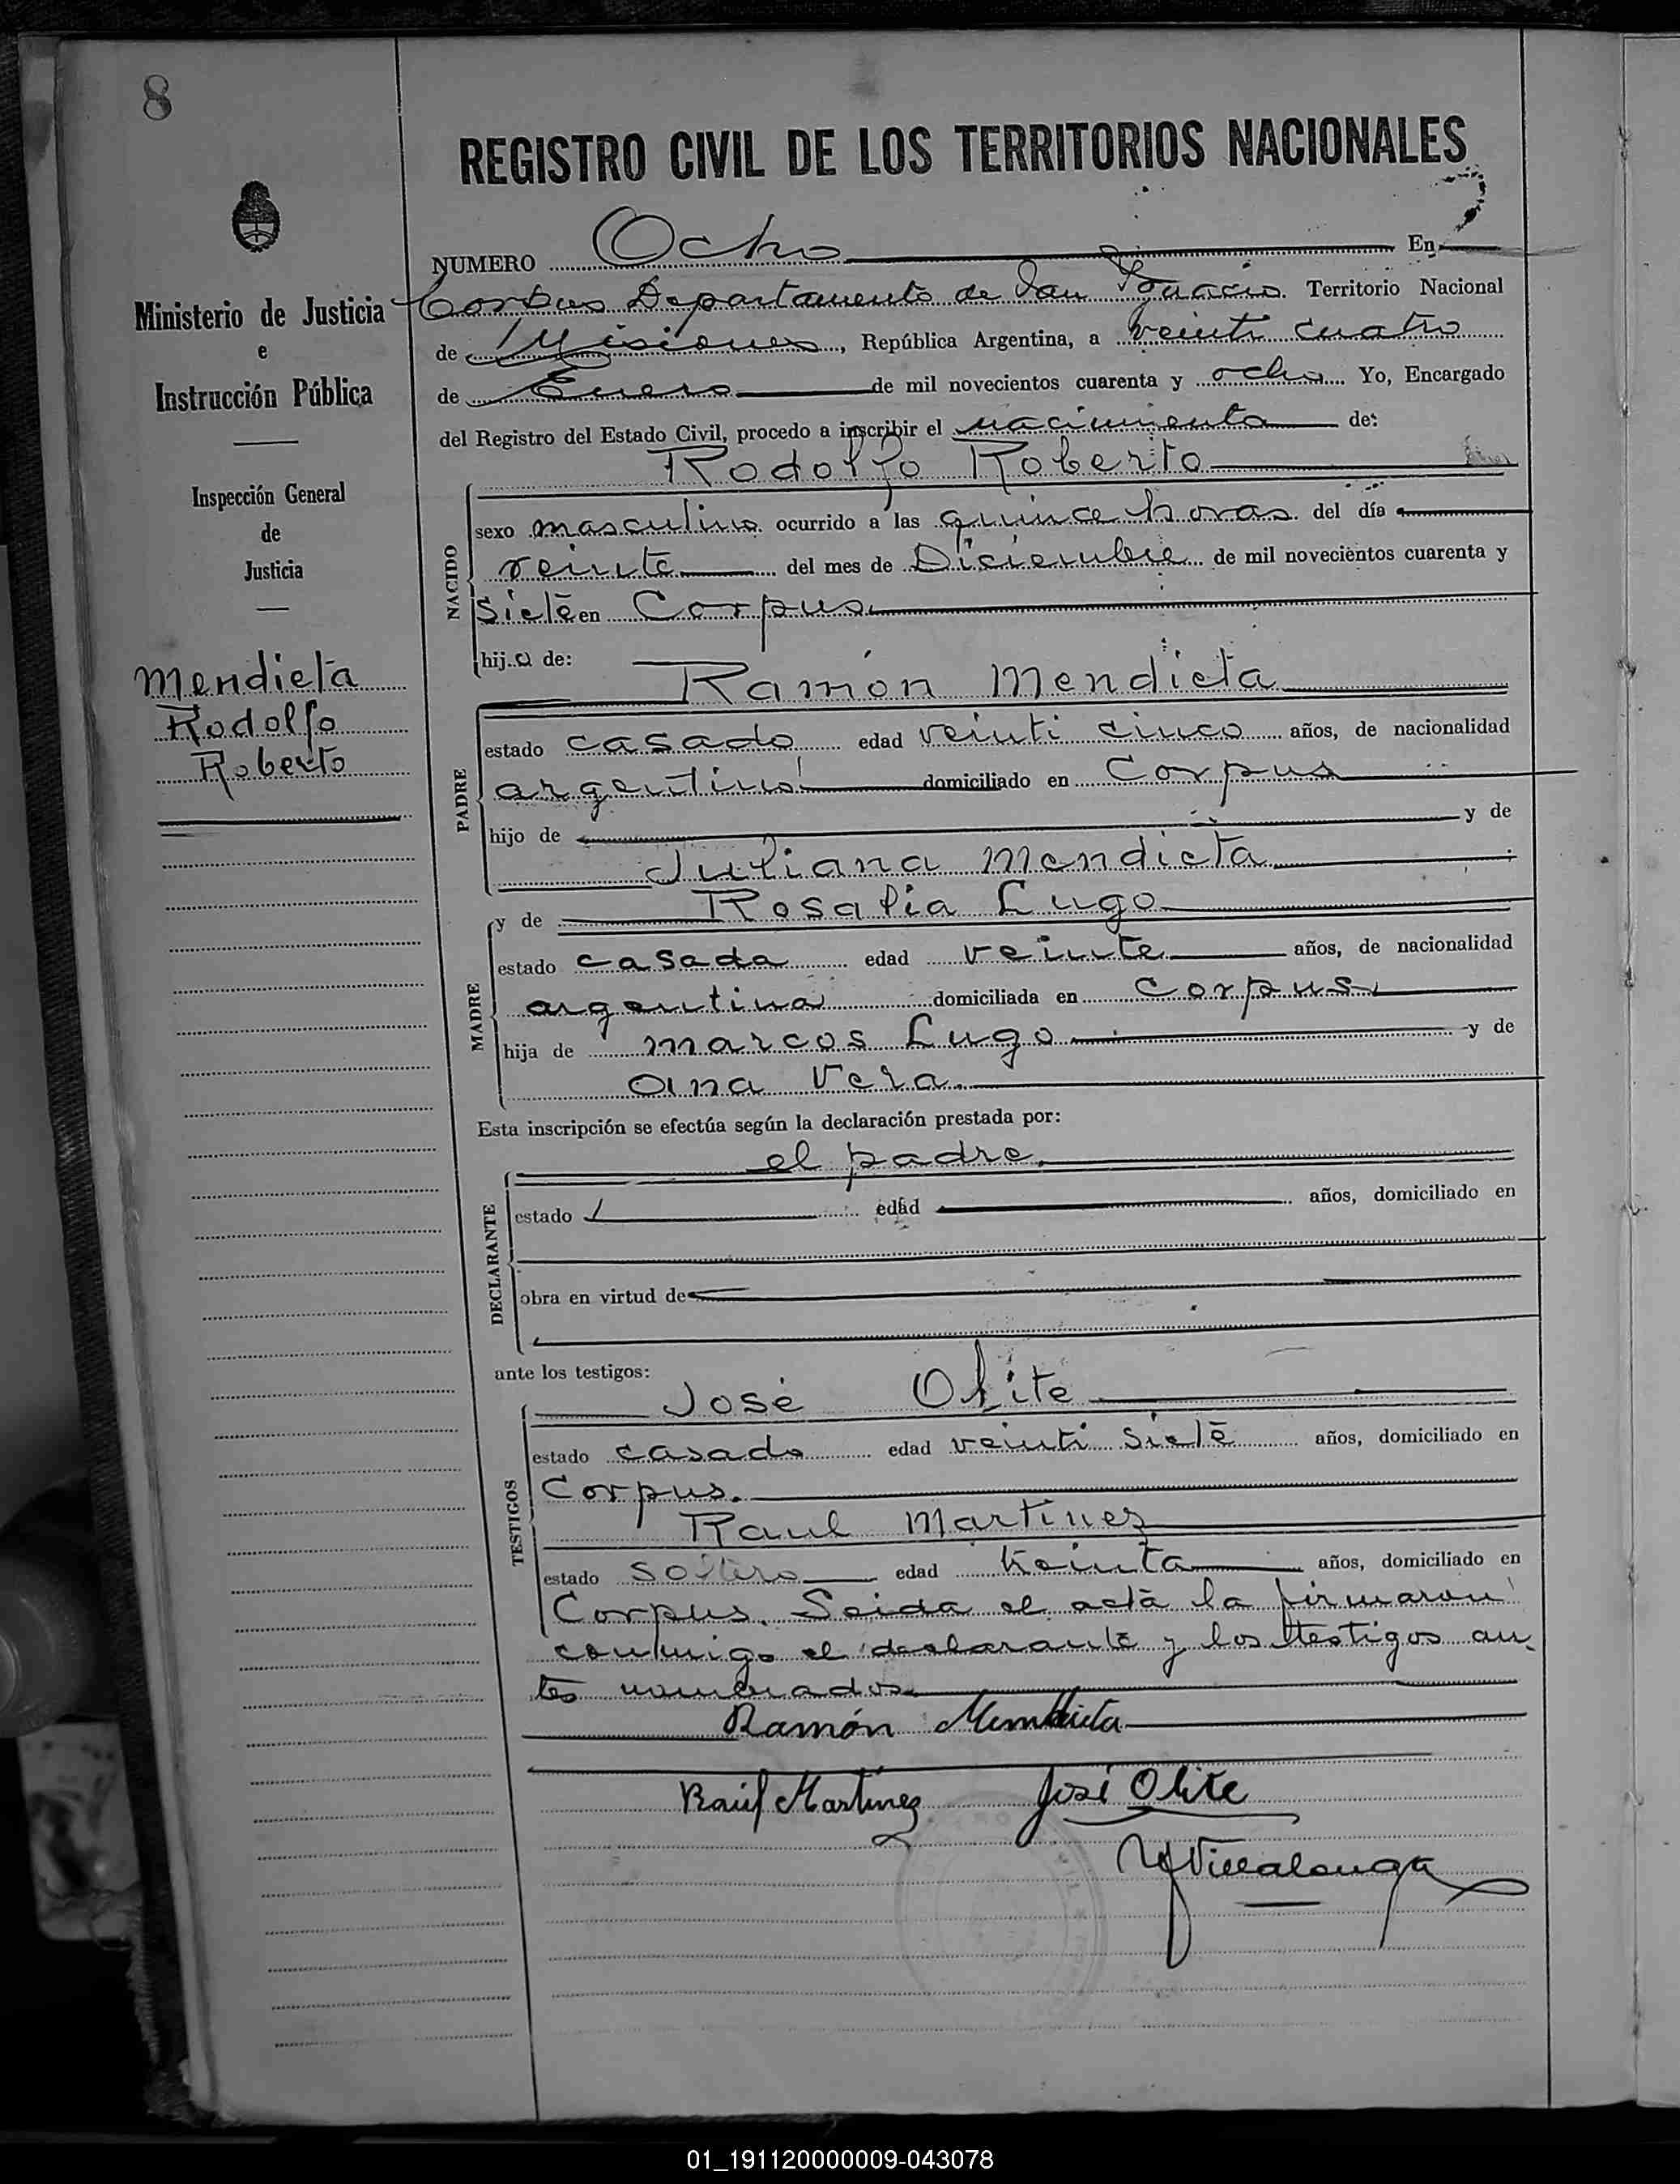 8
REGISTRO CIVIL DE LOS TERRITORIOS NACIONALES
NUMERO Ocho En
Corpus Departamento de San Ignacio Territorio Nacional
de Misiones, República Argentina, a veinti cuatro
de Enero de mil novecientos cuarenta y ocho Yo, Encargado
del Registro del Estado Civil, procedo a inscribir el nacimiento de:
Rodolfo Roberto
NACIDO
sexo masculino ocurrido a las quince horas del día
veinte del mes de Diciembre de mil novecientos cuarenta y
siete en Corpus
hij.o de:
Ramón Mendieta
PADRE
estado casado edad veinti cinco años, de nacionalidad
argentino domiciliado en Corpus
hijo de y de
Juliana Mendieta
y de Rosalia Lugo
MADRE
estado casada edad veinte años, de nacionalidad
argentina domiciliada en Corpus
hija de Marcos Lugo y de
Ana Vera.
Esta inscripción se efectúa según la declaración prestada por:
el padre.
DECLARANTE
estado edad años, domiciliado en
obra en virtud de
ante los testigos:
José Olite
TESTIGOS
estado casado edad veinti siete años, domiciliado en
Corpus.
Raul Martinez
estado soltero edad treinta años, domiciliado en
Corpus. Leida el acta la firmaron
conmigo el declarante y los testigos an-
tes nombrados.
Ramón Mendieta
Raúl Martinez José Olite
Villalonga
Ministerio de Justicia
e
Instrucción Pública
Inspección General
de
Justicia
Mendieta
Rodolfo
Roberto
01_191120000009-043078